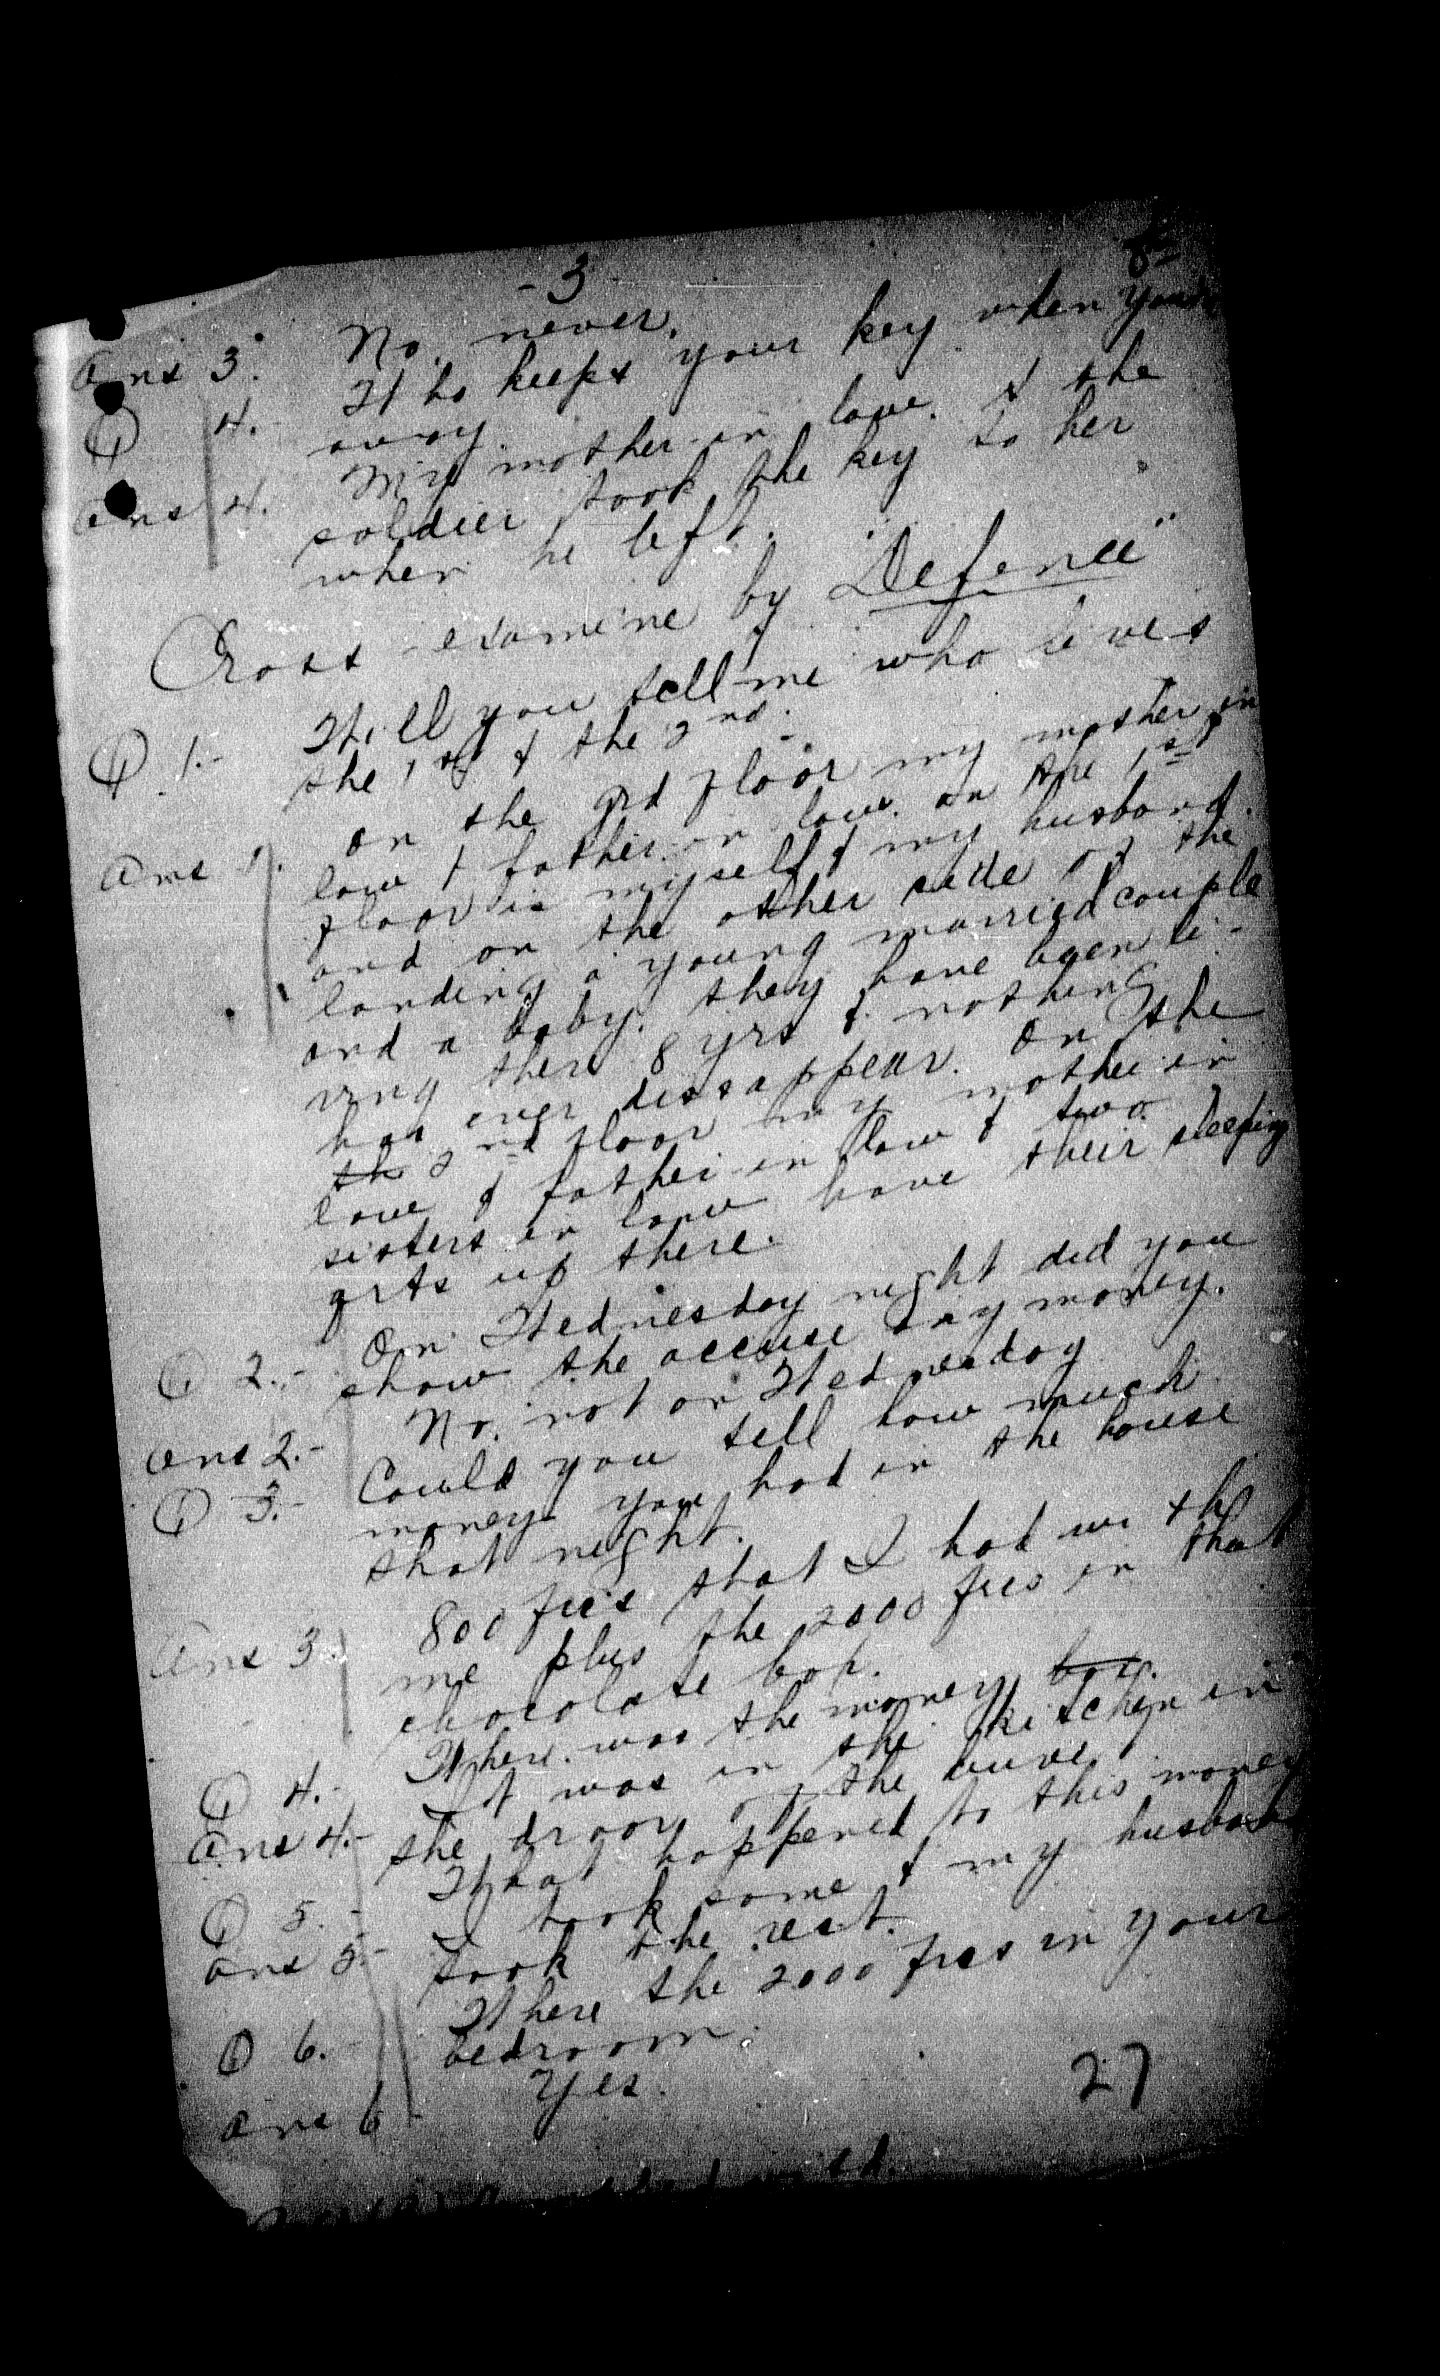 - 3 -
Ans 3. No, never.
Q 4. Who keeps your key when you're
away.
Ans 4. My mother in law. & the
soldier took the key to her
when he left.
Cross examine by "Defence"
Q 1.- Will you tell me who lives
the 1st & the 2nd.
Ans 1. On the grd floor my mother in
law & father in law. on the 1st
floor is myself & my husband.
and on the other side of the
landing a young married couple
and a baby. they have been li-
ving there 8 yrs & nothing
has ever dissappear. On the
th 2nd floor my mother in
law & father in law & two
sisters in law have their sleeping
qrts up there.
Q 2.- On Wednesday night did you
show the accuse any money.
Ans 2.- No, not on Wednesday
Q 3.- Could you tell how much
money you had in the house
that night.
Ans 3. 800 fres that I had with
me plus the 2000 fres in that
chocolate box.
Q 4.- Where was the money box.
Ans 4.- It was in the kitchen in
the droor of the buive.
Q 5.- What happened to this money
Ans 5- I took some & my husband
took the rest.
Q 6.- Where the 2000 fres in your
bedroom.
Ans 6- Yes.
27